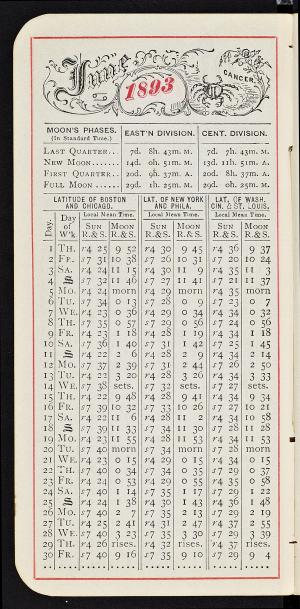 June
1893
CANCER.
MOON'S PHASES. (In Standard Time.) EAST'N DIVISION. CENT. DIVISION.
LAST QUARTER.. 7d. 8h. 43m. M. 7d. 7h. 43m. M.
NEW MOON...... 14d. 0h. 51m. M. 13d. 11h. 51m. A.
FIRST QUARTER.. 20d. 9h. 37m. A. 20d. 8h. 37m. A.
FULL MOON ..... 29d. 1h. 25m. M. 29d. 0h. 25m. M.
LATITUDE OF BOSTON AND CHICAGO. LAT. OF NEW YORK AND PHILA. LAT. OF WASH. CIN. & ST. LOUIS.
Local Mean Time. Local Mean Time. Local Mean Time.
Day. Day of W'k. SUN R.&S. MOON R.&S. SUN R.&S. MOON R.&S. SUN R.&S. MOON R.&S.
1 TH. r4 25 9 52 r4 30 9 45 r4 36 9 37
2 FR. s7 31 10 38 s7 26 10 31 s7 20 10 24
3 SA. r4 24 11 15 r4 30 11 9 r4 35 11 3
4 S s7 32 11 46 s7 27 11 41 s7 21 11 37
5 MO. r4 24 morn r4 29 morn r4 35 morn
6 TU. s7 34 0 13 s7 28 0 9 s7 23 0 7
7 WE. r4 23 0 36 r4 29 0 34 r4 34 0 32
8 TH. s7 35 0 57 s7 29 0 56 s7 24 0 56
9 FR. r4 23 1 18 r4 28 1 19 r4 34 1 18
10 SA. s7 36 1 40 s7 31 1 42 s7 25 1 45
11 S r4 22 2 6 r4 28 2 9 r4 34 2 14
12 MO. s7 37 2 39 s7 31 2 44 s7 26 2 50
13 TU. r4 22 3 20 r4 28 3 26 r4 34 3 33
14 WE. s7 38 sets. s7 32 sets. s7 27 sets.
15 TH. r4 22 9 48 r4 28 9 41 r4 34 9 34
16 FR. s7 39 10 32 s7 33 10 26 s7 27 10 21
17 SA. r4 22 11 6 r4 28 11 2 r4 34 10 58
18 S s7 39 11 33 s7 34 11 30 s7 28 11 28
19 MO. r4 23 11 55 r4 28 11 53 r4 34 11 53
20 TU. s7 40 morn s7 34 morn s7 28 morn
21 WE. r4 23 0 15 r4 29 0 15 r4 34 0 15
22 TH. s7 40 0 34 s7 34 0 35 s7 29 0 37
23 FR. r4 24 0 53 r4 29 0 55 r4 35 0 58
24 SA. s7 40 1 14 s7 35 1 17 s7 29 1 22
25 S r4 24 1 38 r4 30 1 43 r4 36 1 48
26 MO. s7 40 2 7 s7 35 2 13 s7 29 2 19
27 TU. r4 25 2 41 r4 31 2 47 r4 37 2 55
28 WE. s7 40 3 23 s7 35 3 30 s7 29 3 39
29 TH. r4 26 rises. r4 32 rises. r4 37 rises.
30 FR. s7 40 9 16 s7 35 9 10 s7 29 9 4